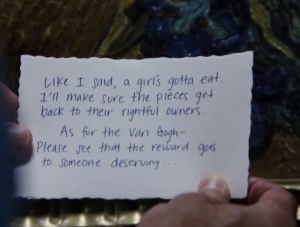 Like I said, a girl's gotta eat.
I'll make sure the pieces get
back to their rightful owners.
As for the Van Gogh-
Please see that the reward goes
to someone deserving....